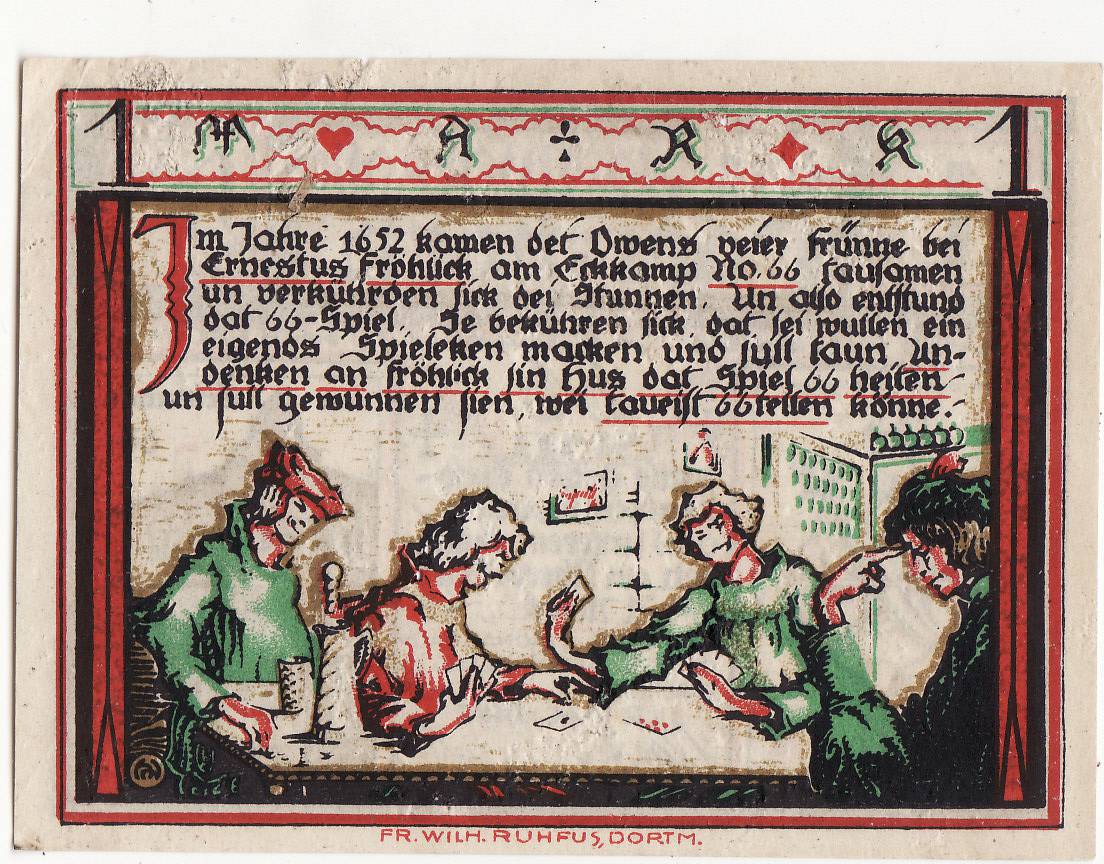 1 M A R K 1
Im Jahre 1652 kamen det Owens veier frünne bei
Ernestus Fröhlick am Eckkamp No. 66 tausamen
un verkührden sick dei Stunnen. Un also entstund
dat 66-Spiel. Se bekühren sick, dat sei wullen ein
eigenos Spieleken macken und sull taun An-
denken an fröhlick sin Hus dat Spiel 66 heiten
un sull gewunnen sien, wei taueist 66 tellen könne.-
FR. WILH. RUHFUS, DORTM.